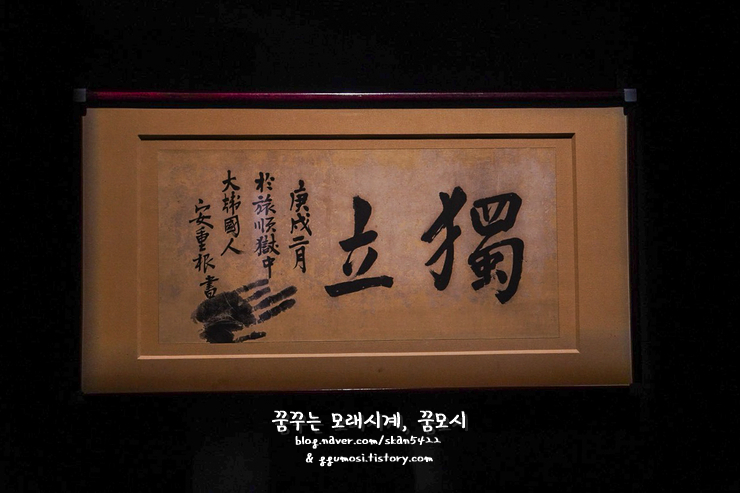 獨立
庚戌二月
於旅順獄中
大韓國人
安重根書
꿈꾸는 모래시계, 꿈모시
blog.naver.com/skan5422
& ggumosi.tistory.com